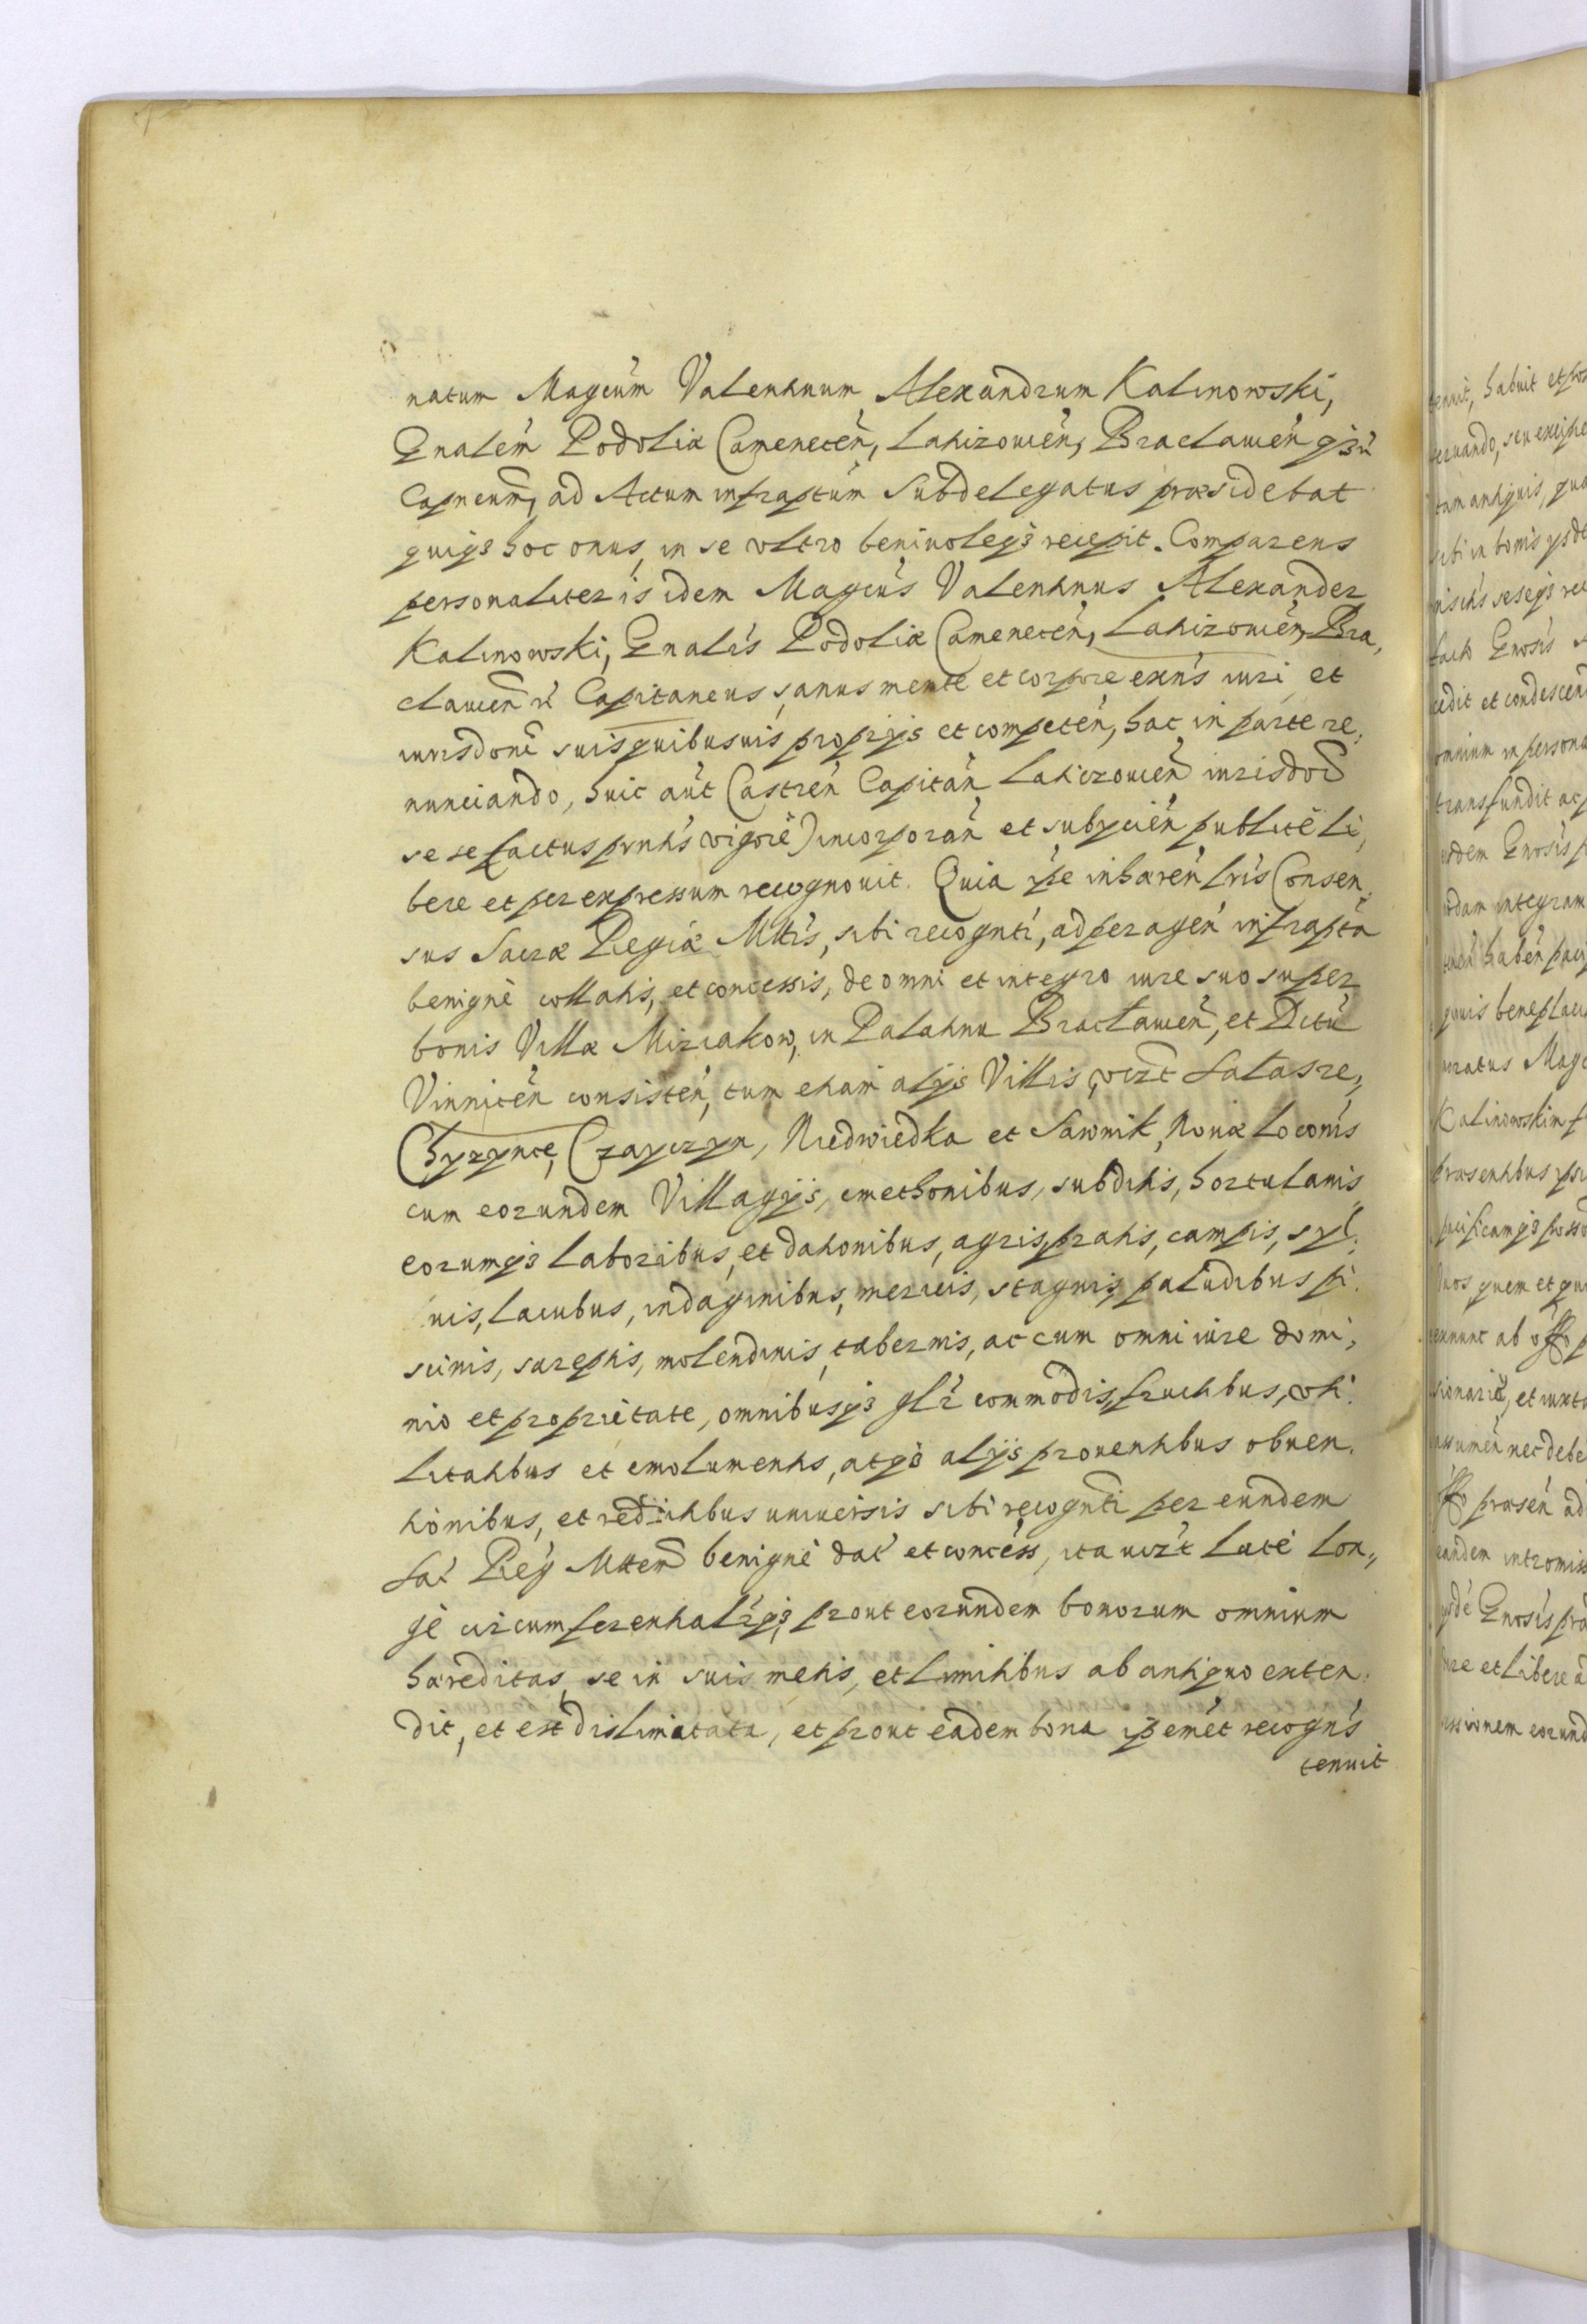 natum Magcum Valentinum Alexandrum Kalinowski,
Gnalem Podoliæ Camenecen, Latizouien, Braclauien q3r
Capneum, ad Actum infraptum Subdelegatus præsidebat
quiq3 hoc onus in se vltro beniuoleq3 recepit. Comparens
personaliter is idem Magcus Valentinus Alexander
Kalinowski, Gnalis Podoliæ Camenecen, Latizouien, Bra,
clauien r Capitaneus, sanus mente et corpore exns iuri et
iurisdoni suis quibusuis proprijs et competen, hac in parte re,
nunciando, huic aut Castren Capitan Laticzouien iurisdoni
se se (actus prntis vigore) incorporan et subijcien publice li,
bere et per expressum recognouit. Quia ipse inhæren lris Consen,
sus Sacræ Regiæ Mttis, sibi recognti, ad peragen infrapta
benigne collatis, et concessis, de omni et integro iure suo super
bonis Villæ Miziakow, in Palatinu Bracławien, et Dctu
Vinnicen consisten, tum etiam alijs Villis, vizt Sałasze,,
Chyzynce, Czayczyn, Niedwiedka et Sawnik, Nouæ Loconis
cum eorundem Villagijs, cmethonibus, subditis, hortulanis
eorumq3 laboribus, et dationibus, agris, pratis, campis, syl,
uis, lacubus, indaginibus, mericis, stagnis, paludibus pi,
scinis, sareptis, molendinis, tabernis, ac cum omni iure domi,
nio et proprietate, omnibusq3 glr commodis, fructibus, vti,
litatibus et emolumentis, atq3 alijs prouentibus obuen,
tionibus, et redditibus uniuersis sibi recognti per eundem
Sac Reg Mttem benigne dat et concess, ita uizt late lon,,
ge circumferentialrq3, prout eorundem bonorum omnium
hæreditas, se in suis metis, et limitibus ab antiquo exten,
dit, et est dislimitata, et prout eadem bona ipsemet recogns
tenuit